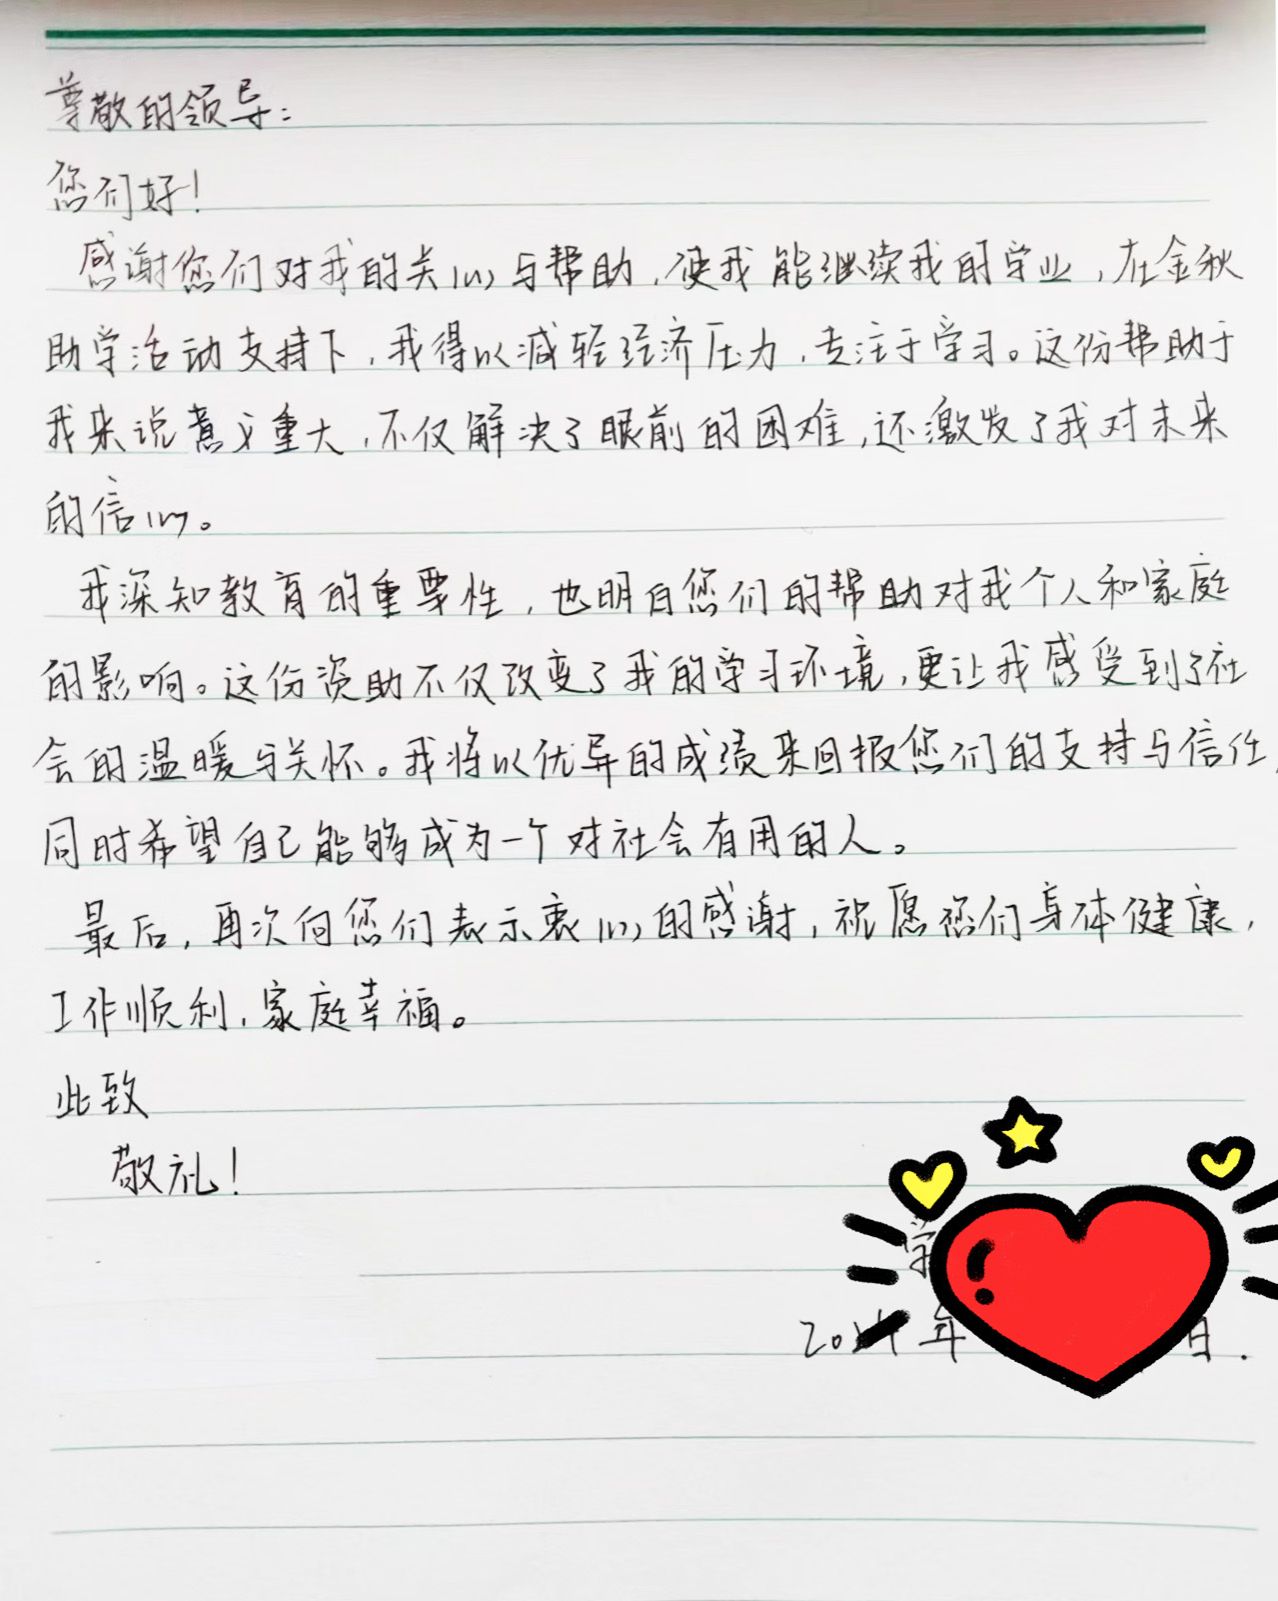 尊敬的领导：
您们好！
感谢您们对我的关心与帮助，使我能继续我的学业，在金秋
助学活动支持下，我得以减轻经济压力，专注于学习。这份帮助于
我来说意义重大，不仅解决了眼前的困难，还激发了我对未来
的信心。
我深知教育的重要性，也明白您们的帮助对我个人和家庭
的影响。这份资助不仅改变了我的学习环境，更让我感受到了社
会的温暖与关怀。我将以优异的成绩来回报您们的支持与信任，
同时希望自己能够成为一个对社会有用的人。
最后，再次向您们表示衷心的感谢，祝愿您们身体健康，
工作顺利，家庭幸福。
此致
敬礼！
学
年 日.